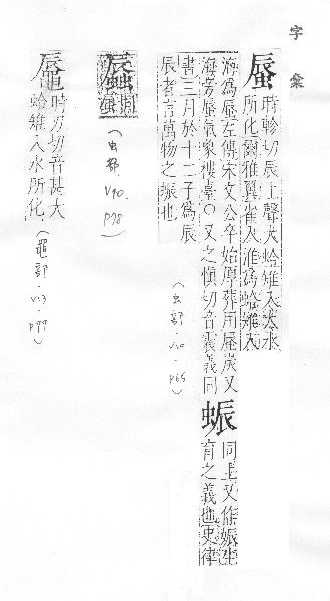 字彙
蜃 時軫切辰上聲大蛤雉入大水
所化爾雅翼雀入淮為蛤雉入
海為蜃左傳宋文公卒始厚葬用蜃炭又
海旁蜃氣象樓臺○又之慎切音震義同
蜄 同上又作娠生
育之義也史律
書三月於十二子為辰
辰者言萬物之振也
(虫部.V10.P65)
同
(虫部, V10. P98)
時刃切音甚大
蛤雉入水所化
(黽部.V13.P99)